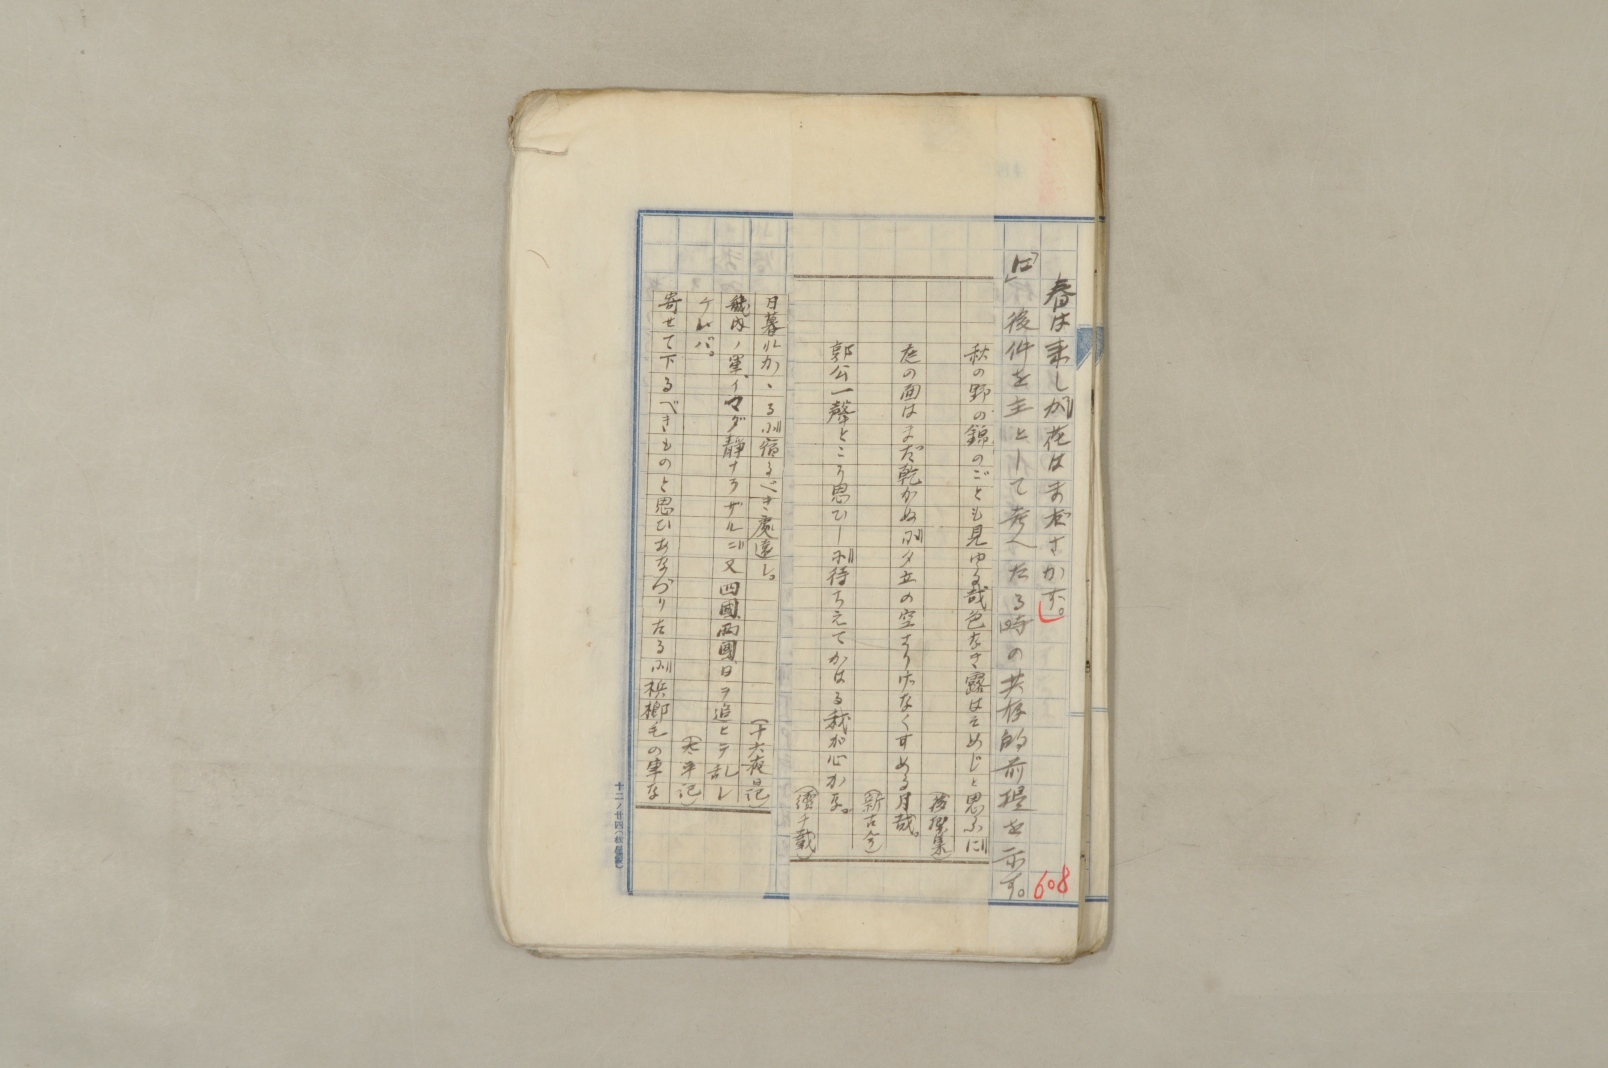 春は来しが花はまださかず。
「は」後件を主として考へたる時の共存的前提を示す。
秋の野の錦のごとも見ゆる哉色なき露はそめじと思ふに
(後撰集)
庭の面はまだ乾かぬに夕立の空さりげなくすめる月哉。
(新古今)
郭公一聲とこそ思ひしに待ちえてかはる我が心かな。
(續千載)
日暮れかゝるに宿るべき處遠し。
(十六夜日記)
畿内ノ軍、イマダ静ナラザルニ又四國、西國、日ヲ追ヒテ乱レ
ケレバ。
(太平記)
寄せて下るべきものと思ひあなづりたるに梹榔毛の車な
608